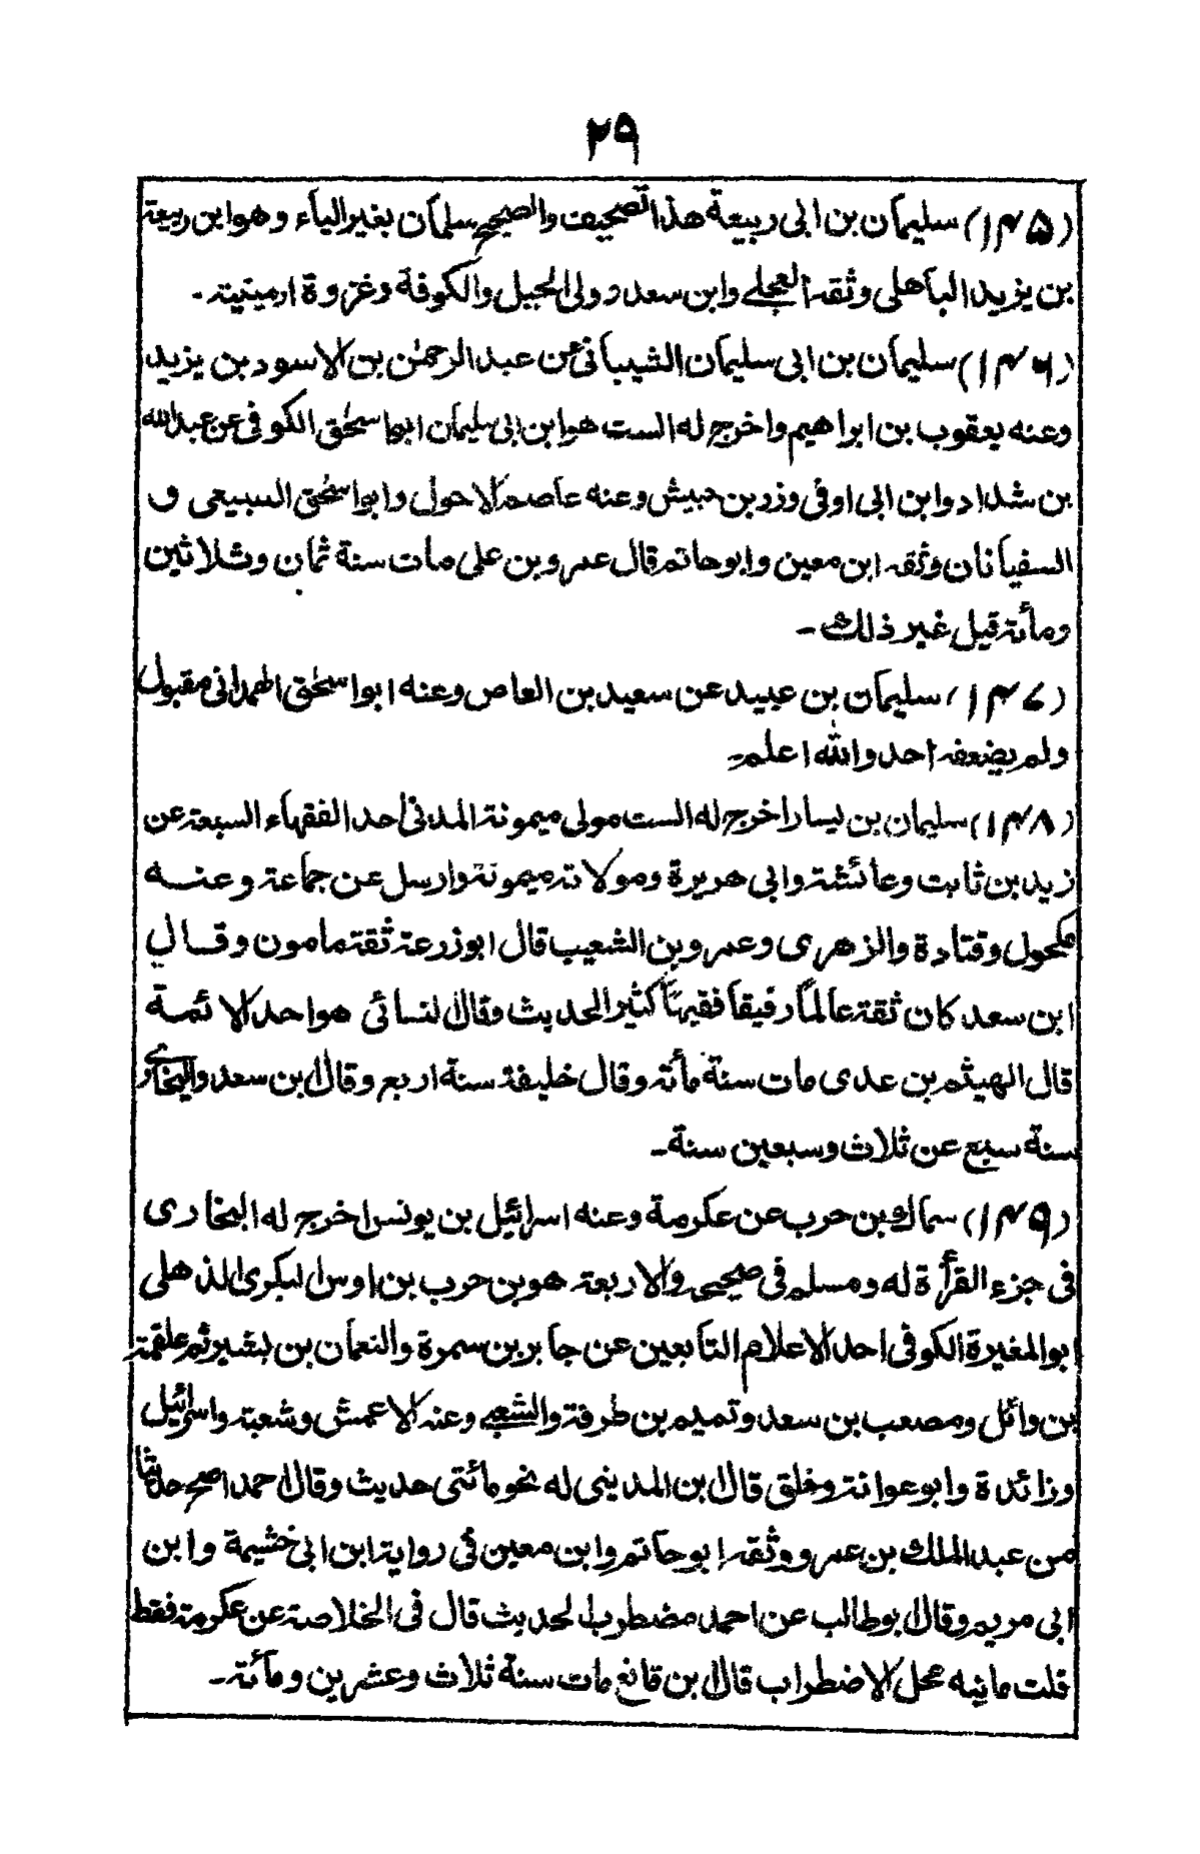 ۲۹
(۱۴۵) سليمان بن ابى ربيعة هذا تصحيف والصحيح سلمان بغير الياء وهو ابن ربيعة
بن يزيد الباهلى وثقه العجلے وابن سعد وولى الجيل والكوفة وغزوة ارمينية۔
(۱۴۶) سليمان بن ابى سليمان الشيبانى عن عبد الرحمٰن بن الاسود بن يزيد
وعنه يعقوب بن ابراهيم واخرج له الست هو ابن ابى سليمان ابو اسحٰق الكوفى عن عبد الله
بن شداد وابن ابى اوفى وزر بن حبيش وعنه عاصم الاحول وابو اسحٰق السبيعى و
السفيانان وثقه ابن معين وابو حاتم قال عمرو بن على مات سنة ثمان وثلاثين
ومأته قيل غير ذلك۔
(۱۴۷) سليمان بن عبيد عن سعيد بن العاص وعنه ابو اسحٰق الهمدانى مقبول
ولم يضعفه احد والله اعلم۔
(۱۴۸) سليمان بن يسار اخرج له الست مولى ميمونة المدنى احد الفقهاء السبعة عن
زيد بن ثابت وعائشة وابى هريرة ومولاته ميمونة وارسل عن جماعة وعنه
مكحول وقتادة والزهرى وعمرو بن الشعيب قال ابو زرعة ثقة مامون وقال
ابن سعد كان ثقة عالمًا رفيقًا فقيهًا كثير الحديث وقال لنسائى هو احد الائمة
قال الهيثم بن عدى مات سنة مأته وقال خليفة سنة اربع وقال ابن سعد والبخارى
سنة سبع عن ثلاث وسبعين سنة۔
(۱۴۹) سماك بن حرب عن عكرمة وعنه اسرائيل بن يونس اخرج له البخارى
فى جزء القرأة له ومسلم فى صحيحه والاربعة هو بن حرب بن اوس البكرى الذهلى
ابو المغيرة الكوفى احد الاعلام التابعين عن جابر بن سمرة والنعمان بن بشير ثم علقمة
بن وائل ومصعب بن سعد وتميم بن طرفة والشعبے وعنه الاعمش وشعبة واسرائيل
وزائدة وابو عوانة وخلق قال ابن المدينى له نحو مائتى حديث وقال احمد اصح حديثا
من عبد الملك بن عمرو ووثقه ابو حاتم وابن معين فى رواية ابن ابى خثيمة وابن
ابى مريم وقال ابو طالب عن احمد مضطرب الحديث قال فى الخلاصة عن عكرمة فقط
قلت مانيه محل الاضطراب قال ابن قانع مات سنة ثلاث وعشرين ومأته۔